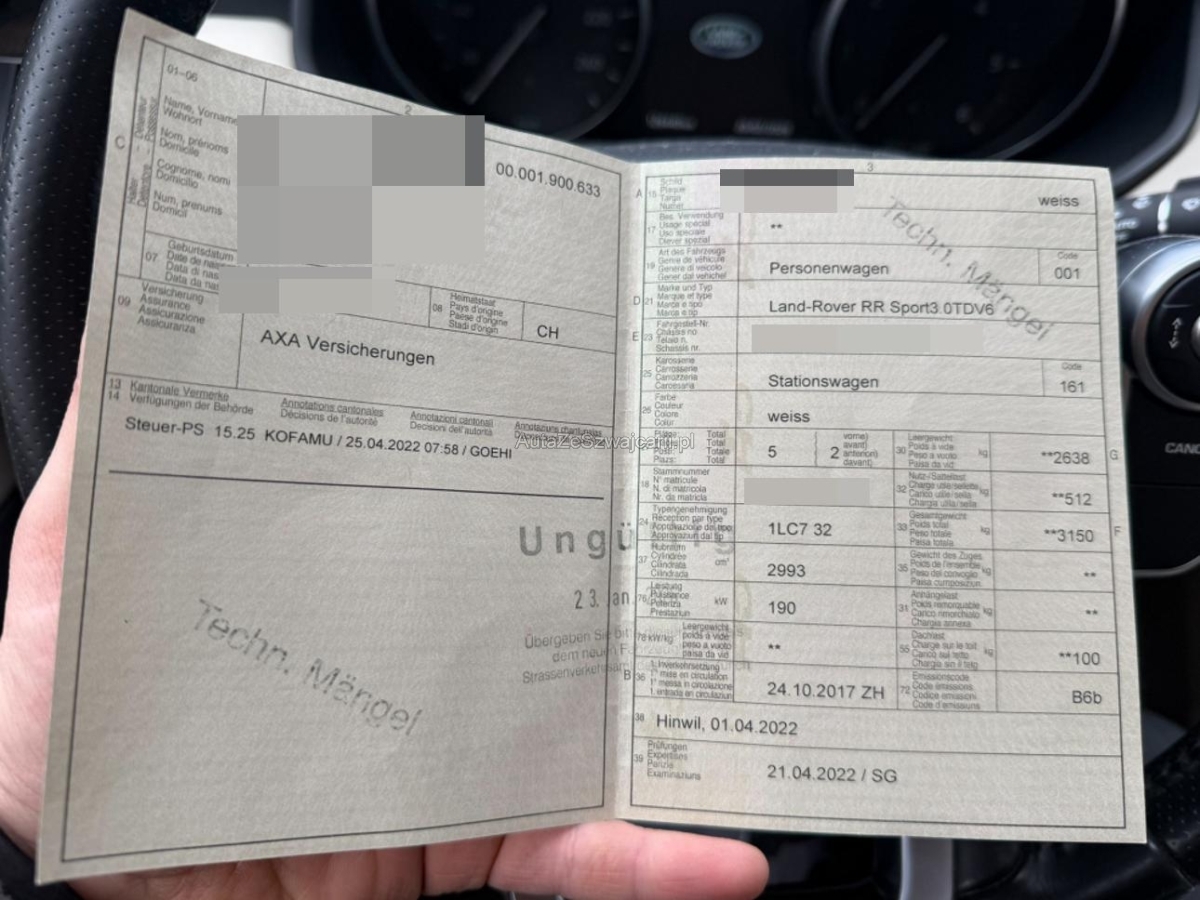 LAND ROVER
01-06
2
C
Halter
Détenteur
Name, Vorname
Wohnort
Nom, prénoms
Domicile
Cognome, nomi
Domicilio
Num, prenums
Domicil
00.001.900.633
07
Geburtsdatum
Date de nais
Data di nas
Data da nas
09
Versicherung
Assurance
Assicurazione
Assicuranza
08
Heimatstaat
Pays d'origine
Paese d'origine
Stadi d'origin
CH
AXA Versicherungen
13
14
Kantonale Vermerke
Verfügungen der Behörde
Annotations cantonales
Décisions de l'autorité
Annotazioni cantonali
Decisioni dell'autorità
Annotaziuns chantunalas
Steuer-PS 15.25 KOFAMU / 25.04.2022 07:58 / GOEHI
AutaZeSzwajcarii.pl
Techn. Mängel
23. Jan.
Übergeben Sie
dem neuen
3
A
Schild
Plaque
Targa
Numer
weiss
17
Bes. Verwendung
Usage spécial
Uso speciale
Diever spezial
**
19
Art des Fahrzeugs
Genre de véhicule
Genere di veicolo
Gener dal vehichel
Personenwagen
Code
001
D
21
Marke und Typ
Marque et type
Marca e tipo
Marca e tip
Land-Rover RR Sport3.0TDV6
Techn. Mängel
E
23
Fahrgestell-Nr.
Châssis no
Telaio n.
Schassis nr.
25
Karosserie
Carrosserie
Carrozzeria
Carossaria
Stationswagen
Code
161
26
Farbe
Couleur
Colore
Color
weiss
Total
Total
Totale
Total
5
2
vorne)
avant)
anteriori)
davant)
30
Leergewicht
Poids à vide
Peso a vuoto
Paisa da vid
kg
**2638
G
18
Stammnummer
N° matricule
N. di matricola
Nr. da matricla
32
Nutz-/Sattellast
Charge utile/sellette
Carico utile/sella
Chargia utila/sella
kg
**512
24
Typengenehmigung
Réception par type
Approvazione del tipo
Approvaziun dal tip
1LC7 32
33
Gesamtgewicht
Poids total
Peso totale
Paisa totala
kg
**3150
F
37
Hubraum
Cylindrée
Cilindrata
Cilindrada
cm³
2993
35
Gewicht des Zuges
Poids de l'ensemble
Peso del convoglio
Paisa cumposiziun
kg
**
76
Leistung
Puissance
Potenza
Prestaziun
kW
190
31
Anhängelast
Poids remorquable
Carico rimorchiato
Chargia annexa
kg
**
78
kW/kg
Leergewicht
poids à vide
peso a vuoto
paisa da vid
**
55
Dachlast
Charge sur le toit
Carico sul tetto
Chargia sin il tetg
kg
**100
B
36
1. Inverkehrsetzung
1re mise en circulation
1a messa in circolazione
1. entrada en circulaziun
24.10.2017 ZH
72
Emissionscode
Code émissions
Codice emissioni
Code d'emissiuns
B6b
38
Hinwil, 01.04.2022
39
Prüfungen
Expertises
Perizie
Examinaziuns
21.04.2022 / SG